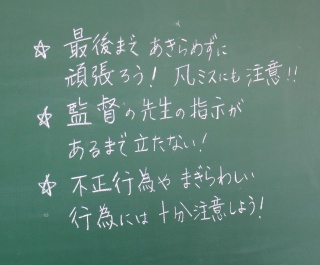 ☆ 最後まで あきらめずに
頑張ろう! 凡ミスにも 注意!!
☆ 監督の先生の指示が
あるまで立たない!
☆ 不正行為や まぎらわしい
行為には十分注意しよう!